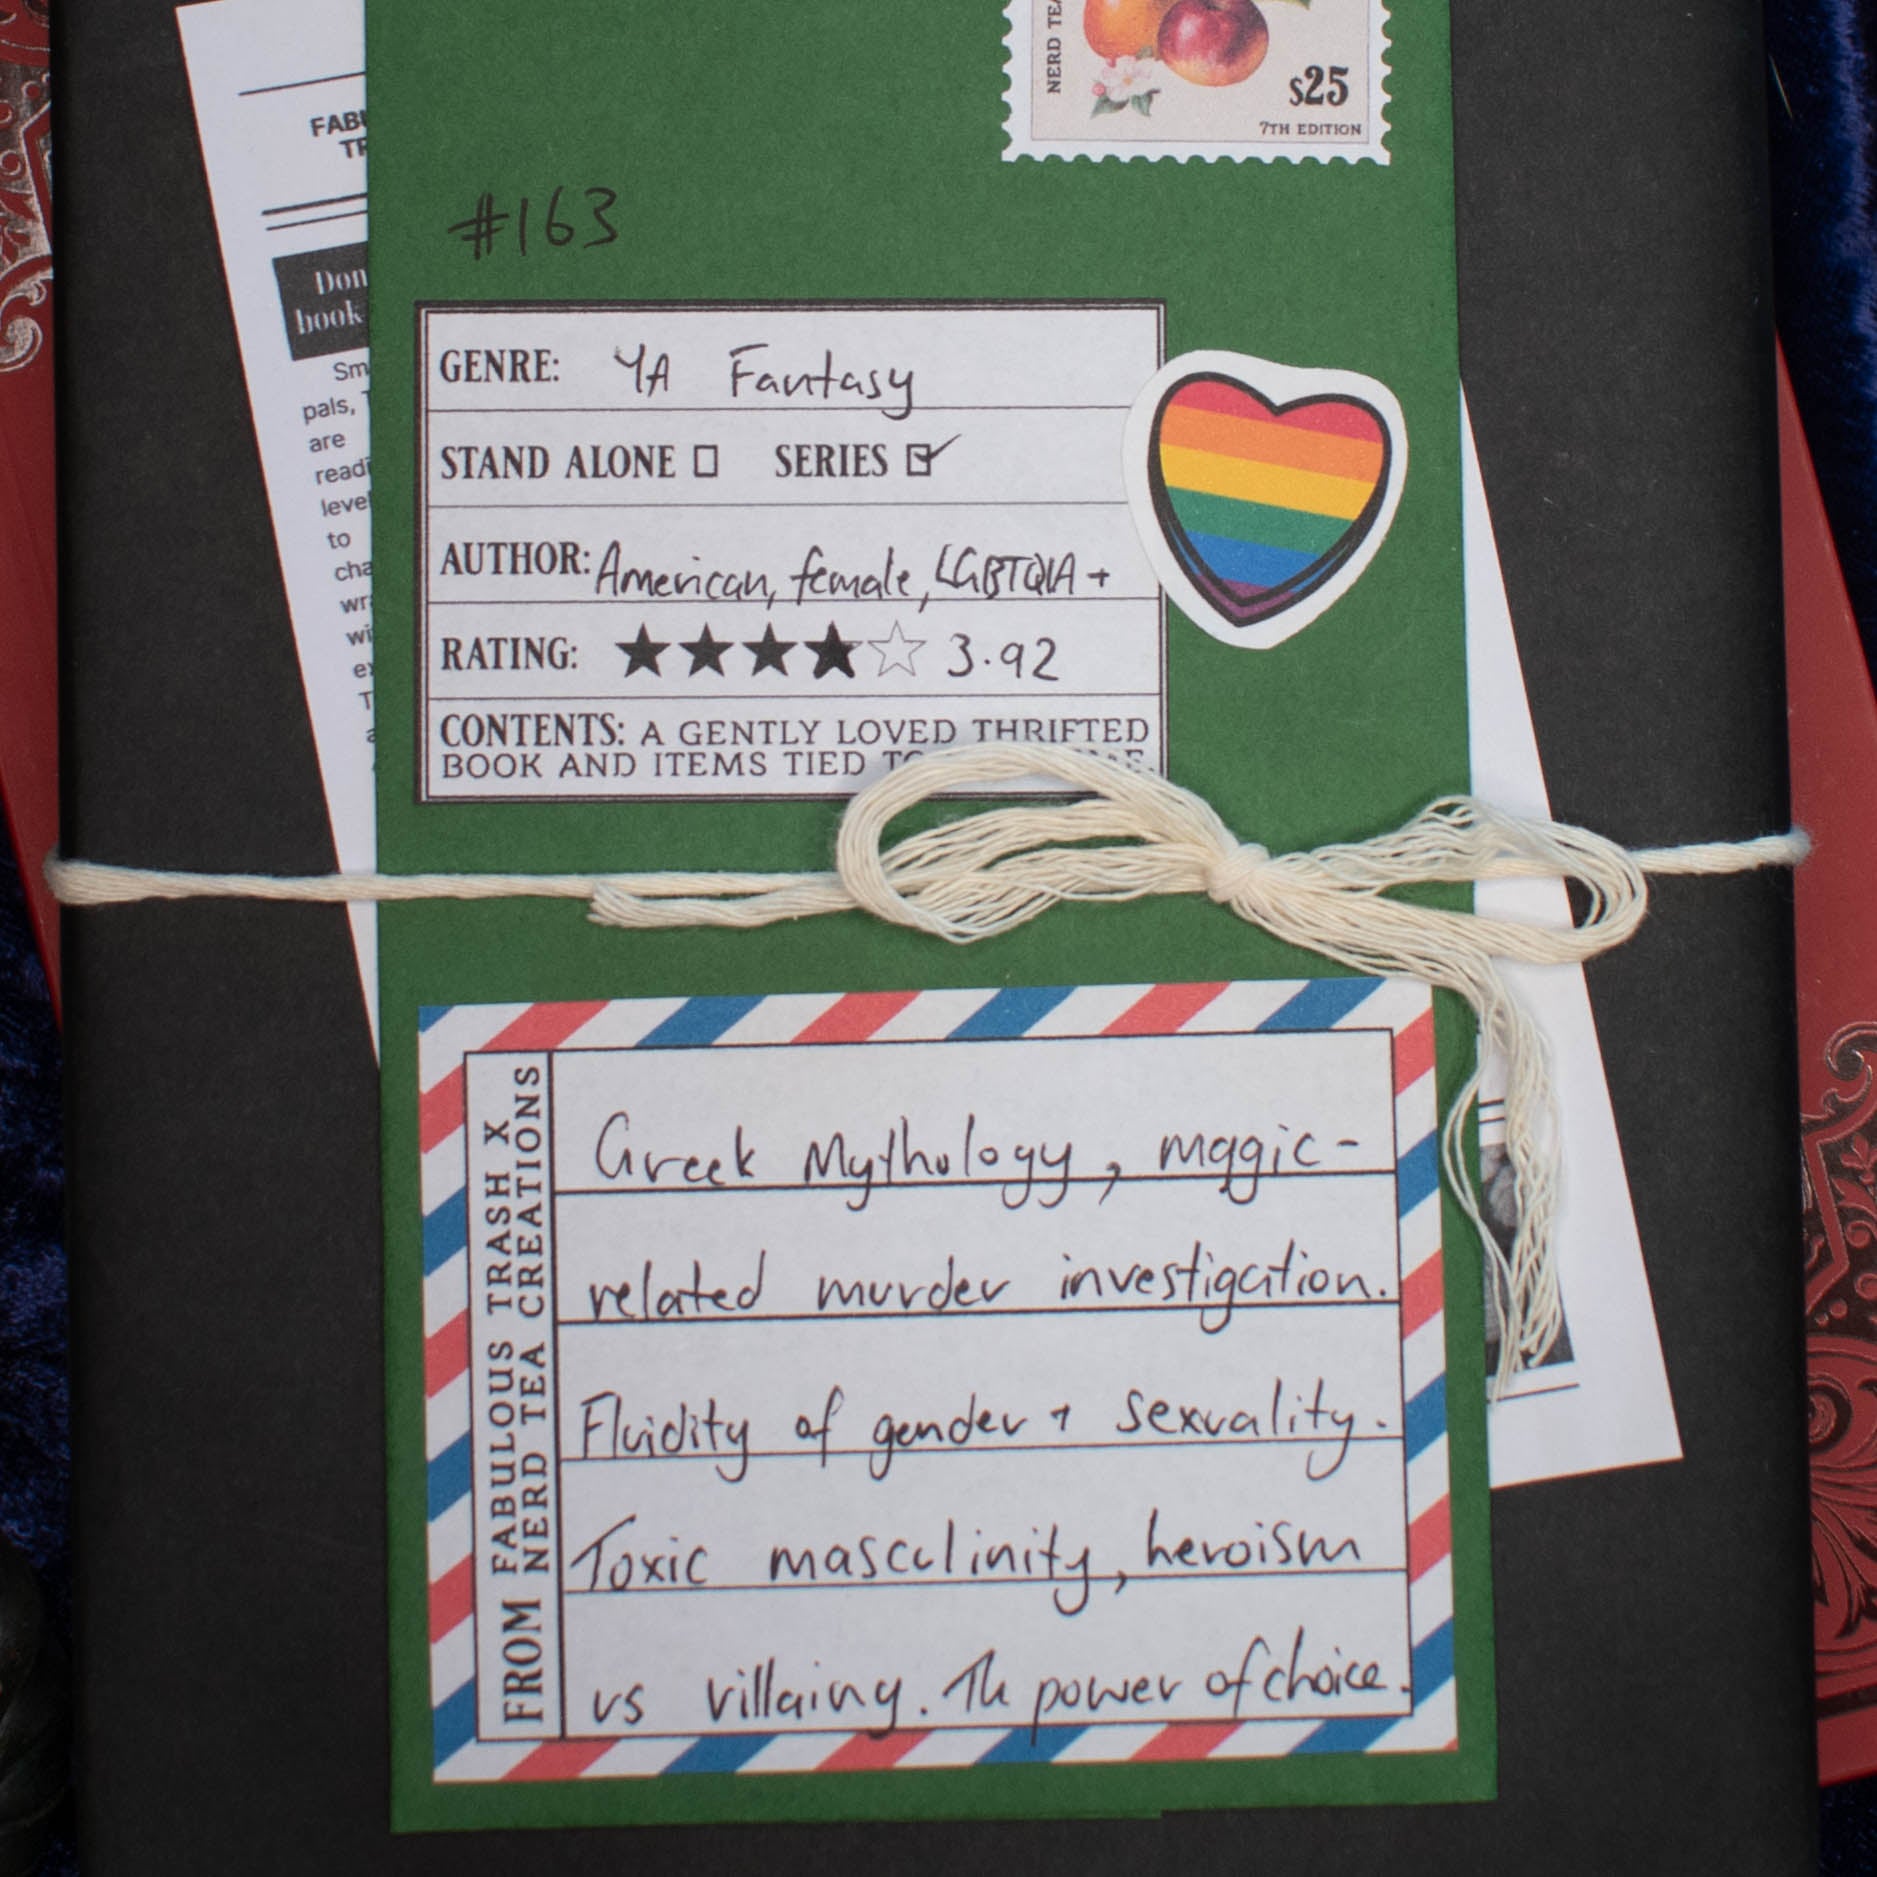 NERD TEA
$25
7TH EDITION
#163
Don
book
Sm
pals,
are
readi
level
to
cha
GENRE: YA Fantasy
STAND ALONE SERIES
AUTHOR: American, female, LGBTQIA +
RATING: ★★★★☆ 3.92
CONTENTS: A GENTLY LOVED THRIFTED
BOOK AND ITEMS TIED
FROM FABULOUS TRASH X
NERD TEA CREATIONS
Greek Mythology, magic-
related murder investigation.
Fluidity of gender + sexuality.
Toxic masculinity, heroism
vs villainy. The power of choice.